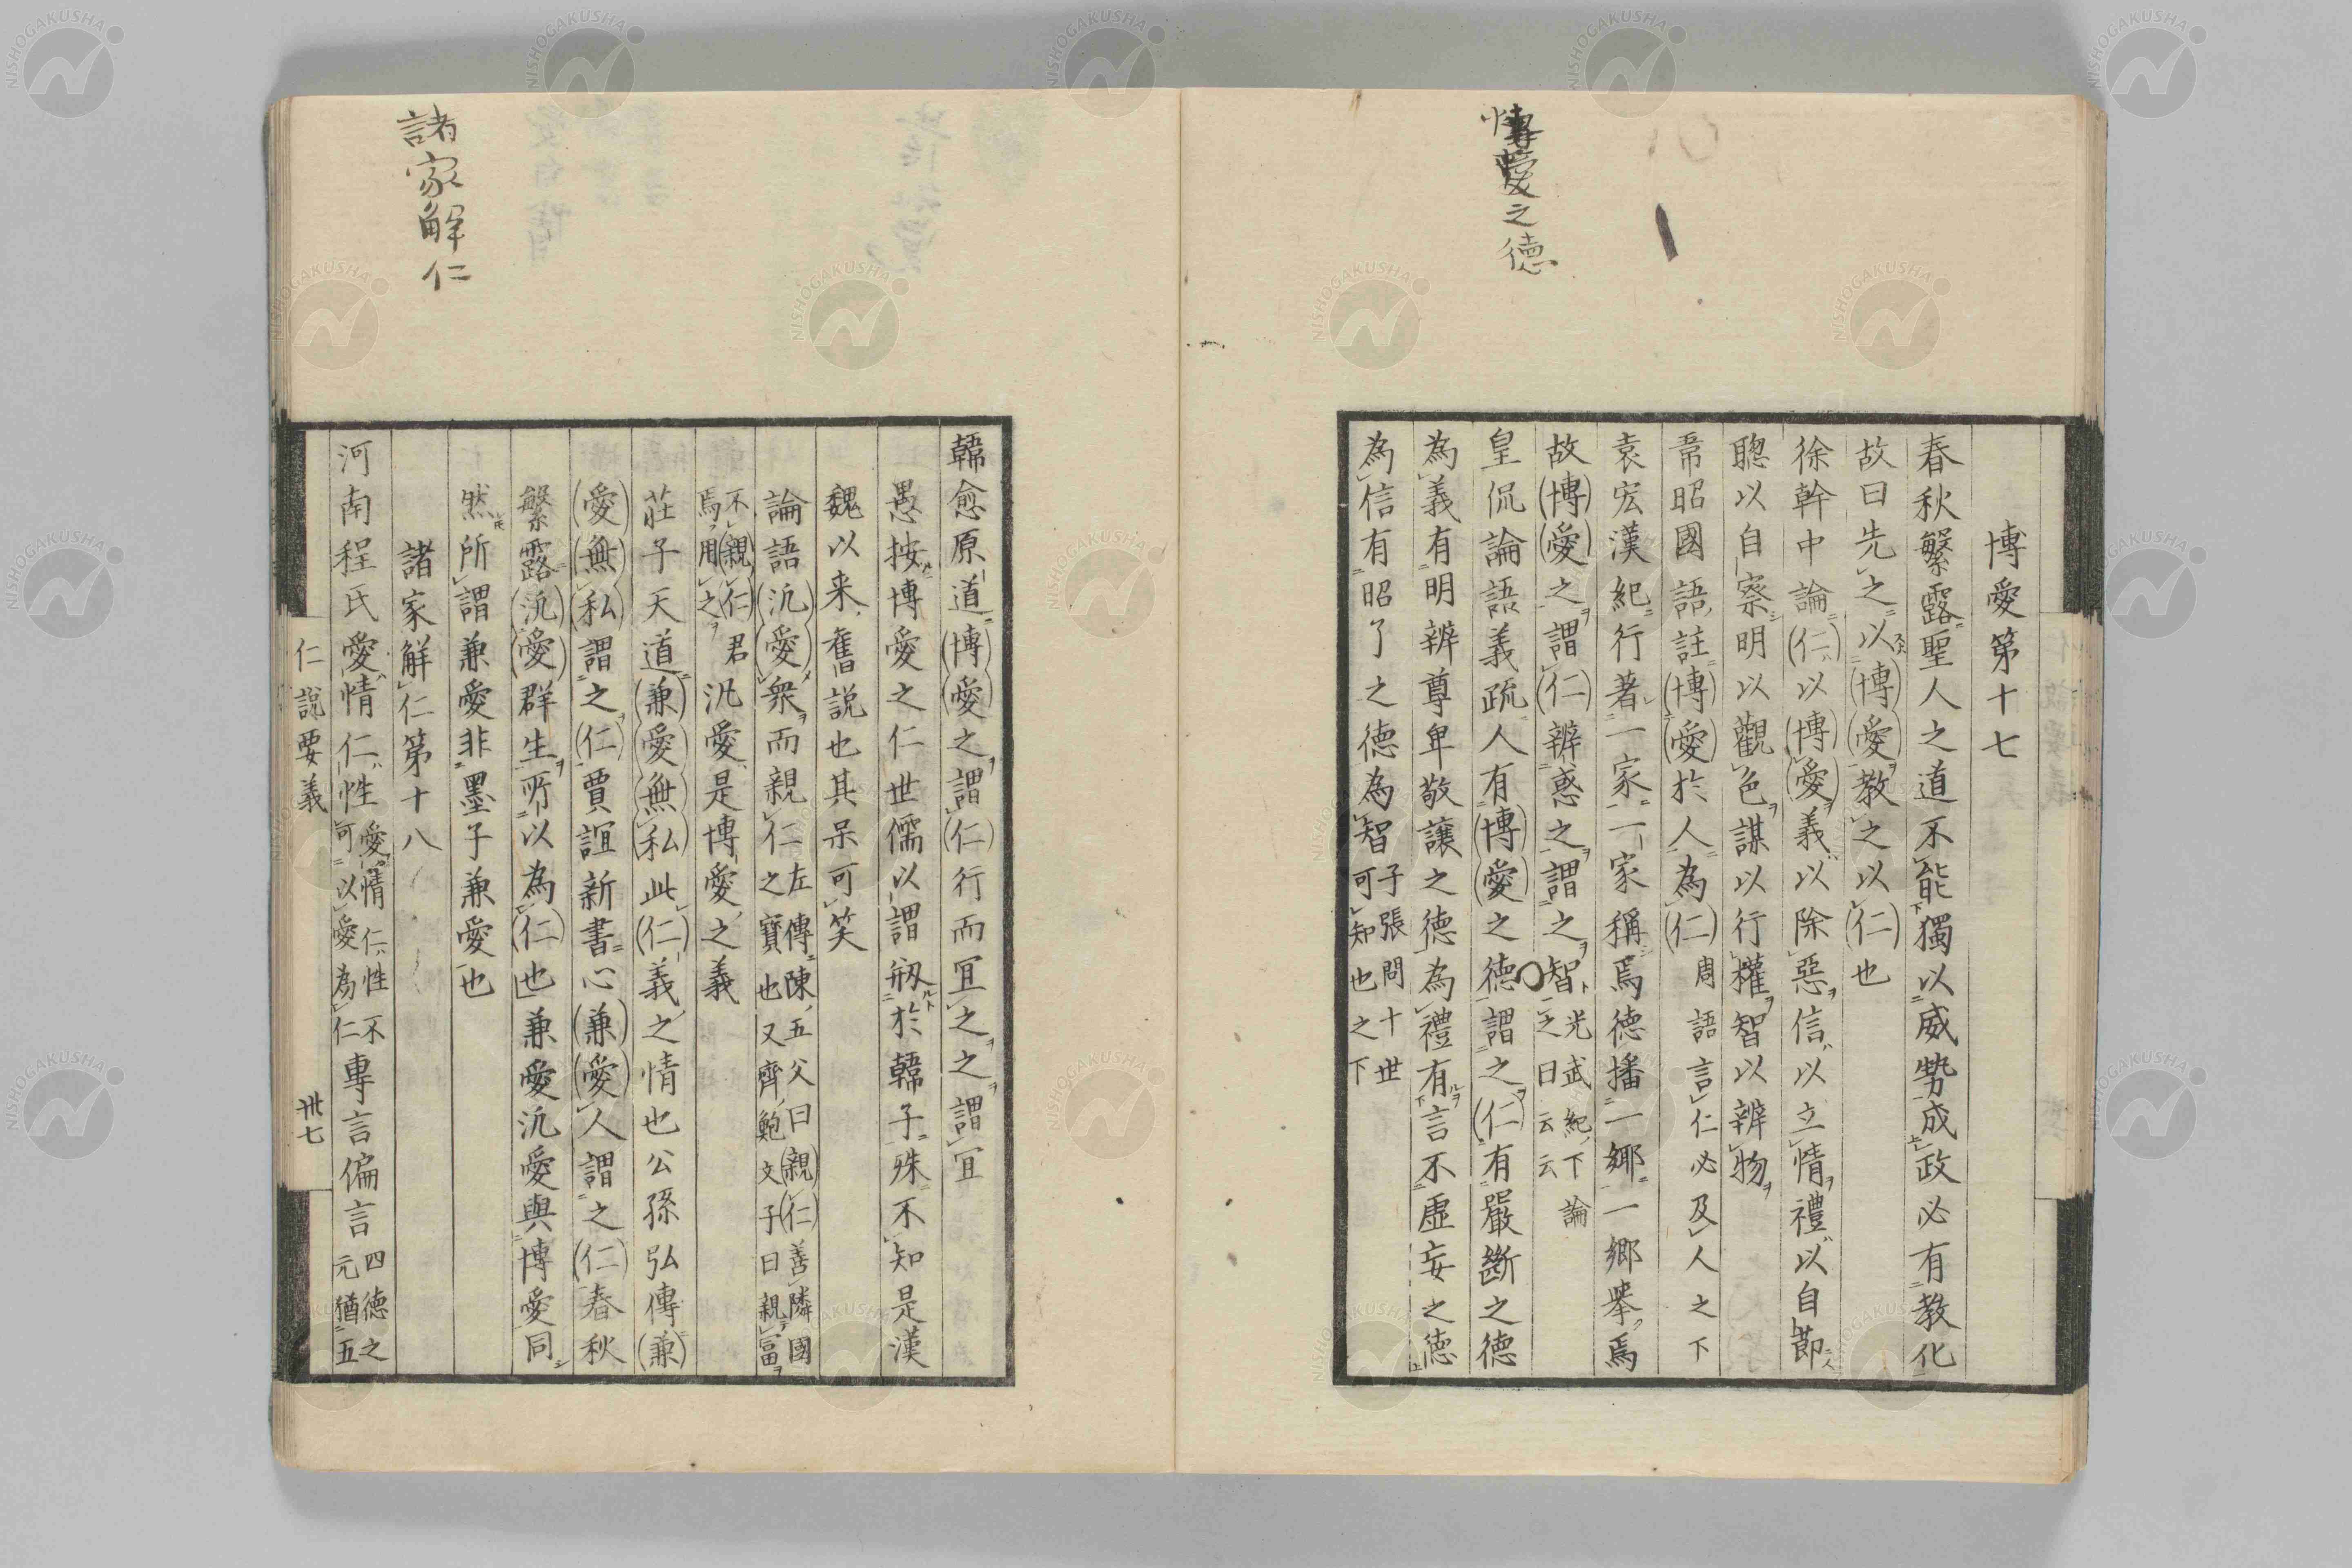 博愛之德
博愛第十七
春秋繁露聖人之道不能獨以威勢成政必有教化
故曰先之以博愛教之以仁也
徐幹中論仁以博愛義以除惡信以立情禮以自節
聰以自察明以觀色謀以行權智以辨物
韋昭國語註博愛於人為仁周語言仁必及人之下
袁宏漢紀行著一家一家稱焉德播一鄉一鄉舉焉
故博愛之謂仁辨惑之謂智光武紀下論之曰云云
皇侃論語義疏人有博愛之德謂之仁有嚴斷之德
為義有明辨尊卑敬讓之德為禮有言不虛妄之德
為信有昭了之德為智子張問十世可知也之下
韓愈原道博愛之謂仁行而宜之之謂宜
愚按博愛之仁世儒以謂剏於韓子殊不知是漢
魏以来舊説也其呆可笑
論語汎愛衆而親仁左傳陳五父曰親仁善隣國之寶也又齊鮑文子曰親富
不親仁君焉用之汎愛是博愛之義
莊子天道兼愛無私此仁義之情也公孫弘傳兼
愛無私謂之仁賈誼新書心兼愛人謂之仁春秋
繁露汎愛群生所以為仁也兼愛汎愛與博愛同
然所謂兼愛非墨子兼愛也
諸家解仁
諸家解仁第十八
河南程氏愛情仁性愛情仁性不可以愛為仁專言偏言四德之元猶五
仁說要義
卅七
NISHOGAKUSHA